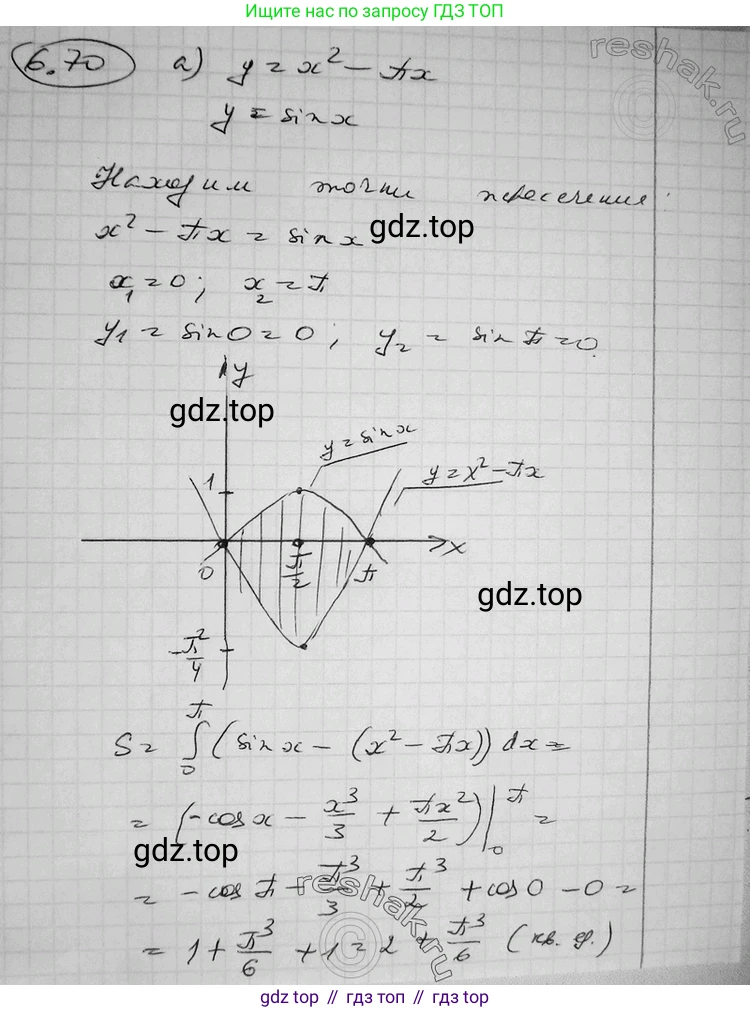 Ищите нас по запросу ГДЗ ТОП
6.70 а) y = x² − πx
y = sin x
reshak.ru
Находим точки пересечения:
x² − πx = sin x
gdz.top
x₁ = 0; x₂ = π
y₁ = sin 0 = 0; y₂ = sin π = 0.
y
gdz.top
y = sin x
y = x² − πx
1
x
0
π/2
π
gdz.top
−π²/4
S = ∫₀^π (sin x − (x² − πx)) dx =
= (−cos x − x³/3 + πx²/2)|₀^π =
gdz.top
= −cos π − π³/3 + π³/2 + cos 0 − 0 =
reshak.ru
= 1 + π³/6 + 1 = 2 + π³/6 (кв. ед.)
gdz top // гдз топ // gdz.top